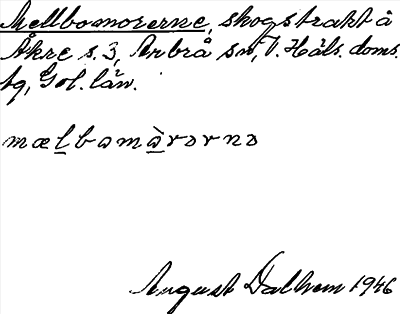 Mellbomorerne, skogstrakt å
Åkre s. 3, Arbrå sn, V. Häls. doms.
tg, Gvl. län.
mælbomàrərnə
August Dalhem 1946